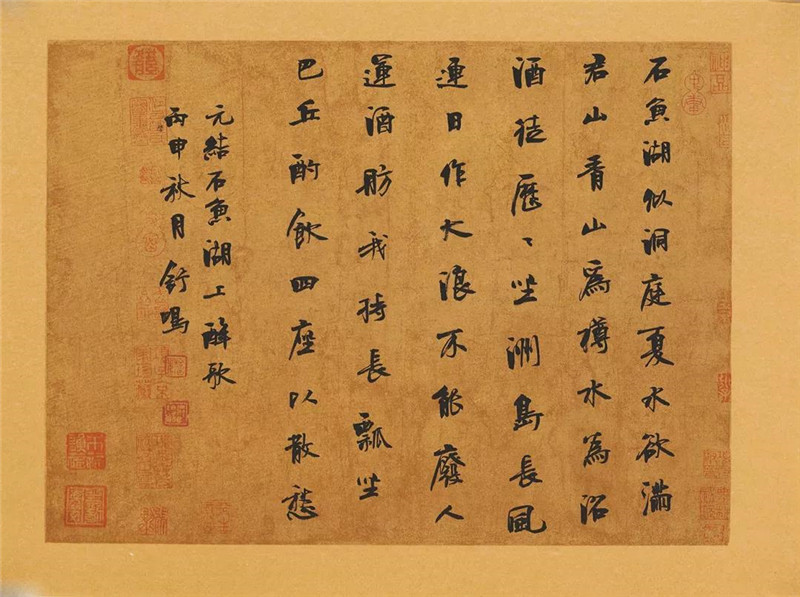 石魚湖似洞庭夏水欲滿
君山青山爲樽水為沼
酒徒歷〻坐洲島長風
連日作大浪不能廢人
運酒舫我持長瓢坐
巴丘酌飲四座以散愁
元結石魚湖上醉歌
丙申秋月舒鳴